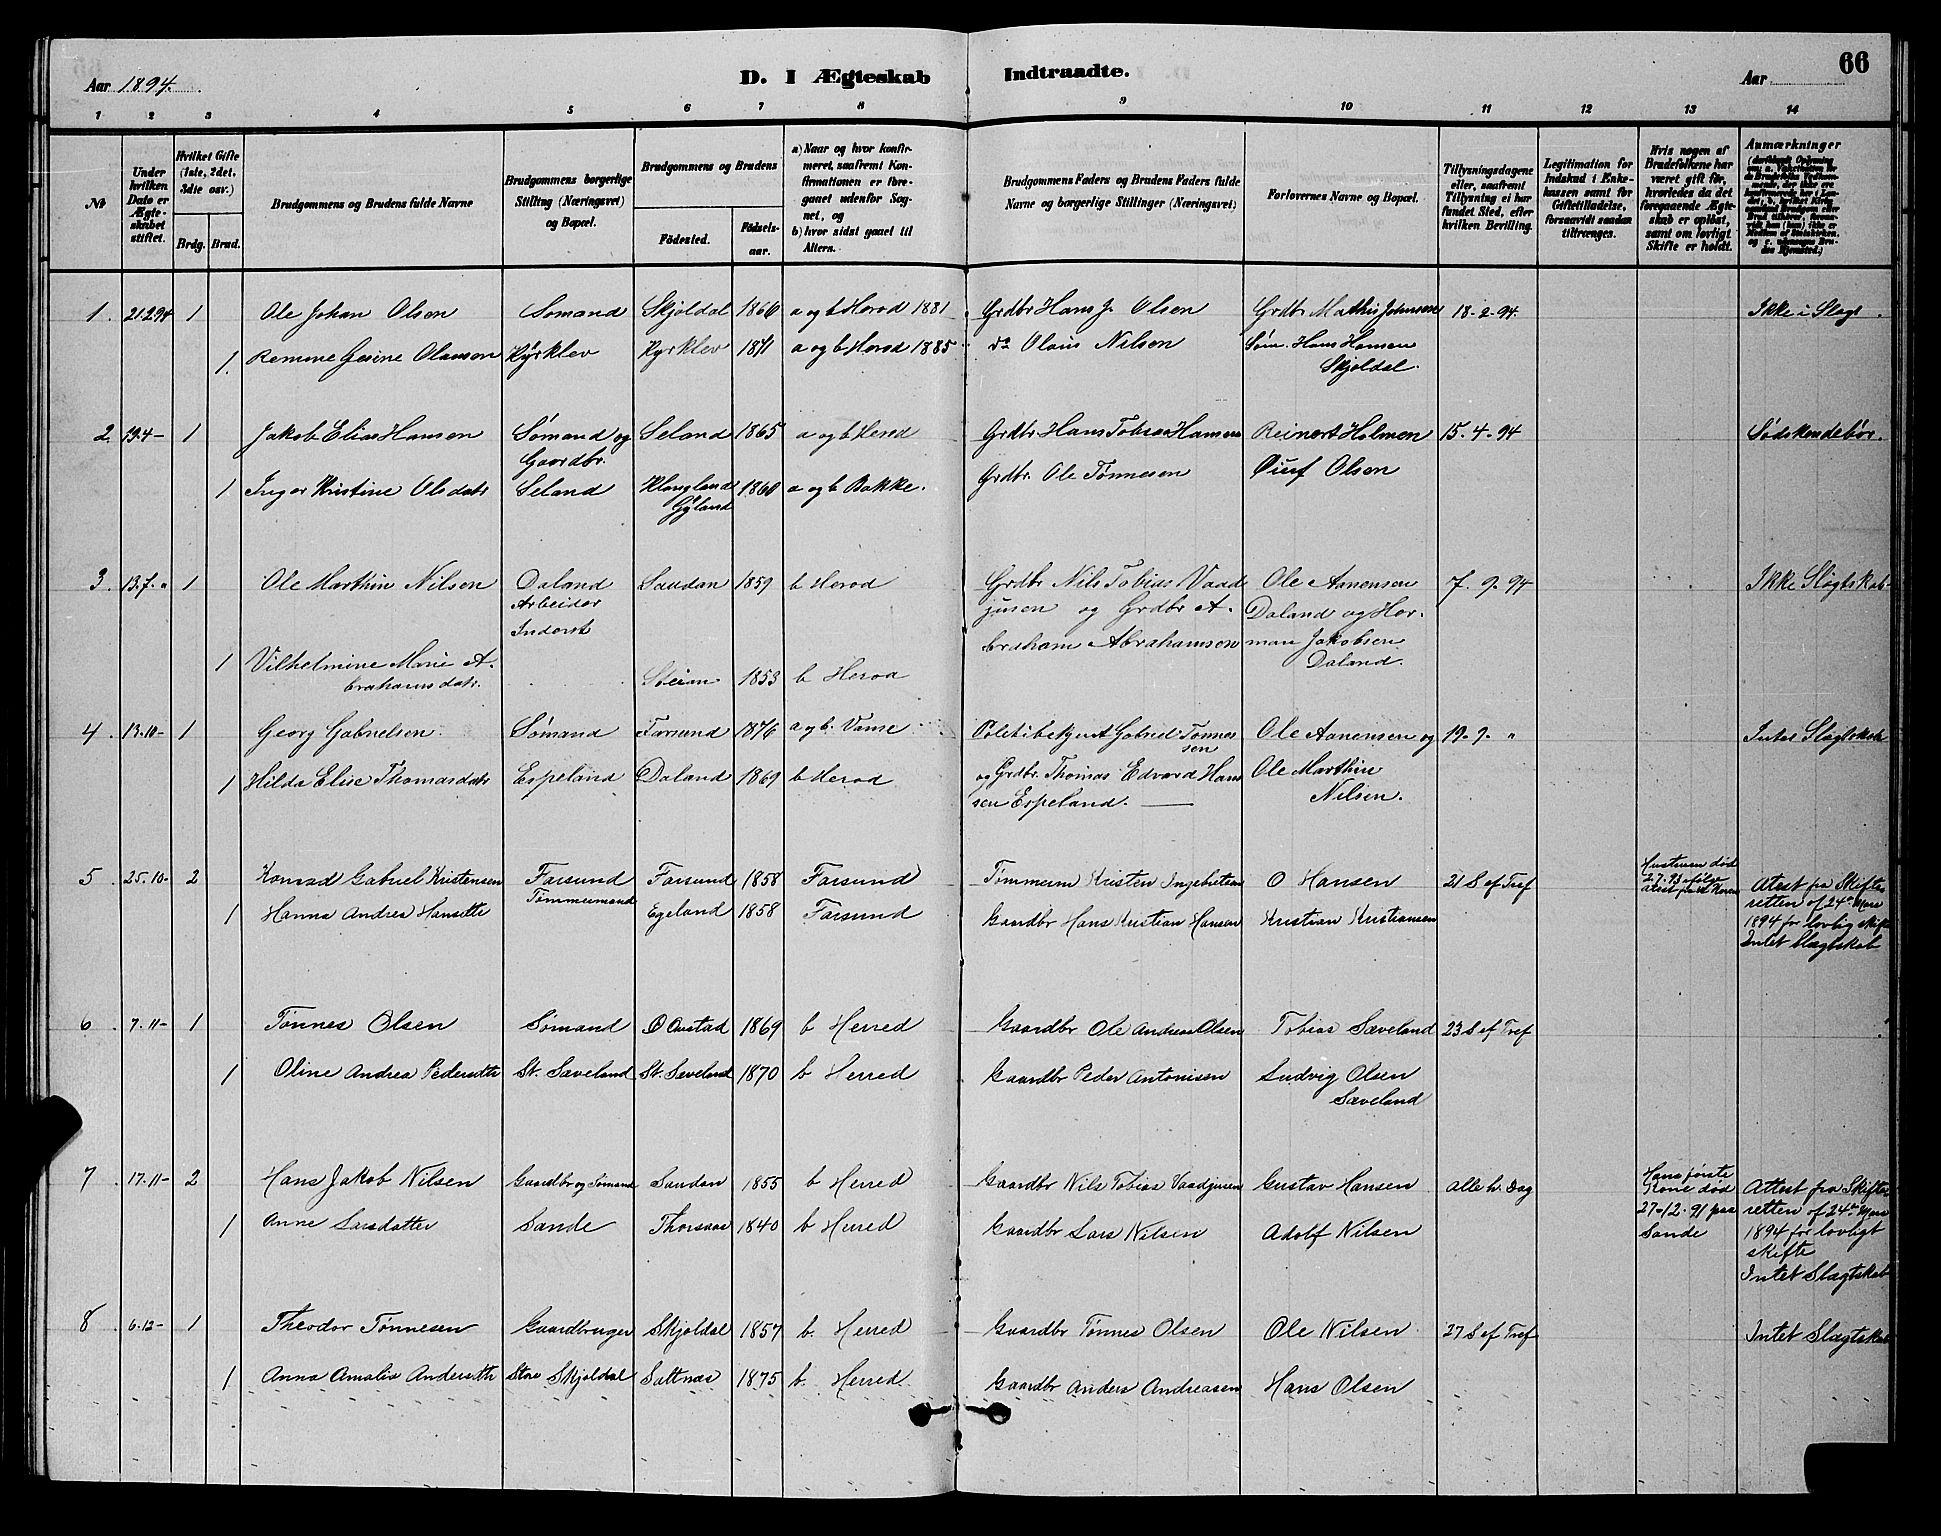 Aar 1894.
D. I Ægteskab Indtraadte.
Aar
66
1 2 3 4 5 6 7 8 9 10 11 12 13 14
No
Under hvilken Dato er Ægteskabet stiftet.
Hvilket Gifte (1ste, 2det, 3die osv.)
Brdg. Brud.
Brudgommens og Brudens fulde Navne
Brudgommens borgerlige Stilling (Næringsvei) og Bopæl.
Brudgommens og Brudens
Fødested. Fødselsaar.
a) Naar og hvor konfirmeret, saafremt Konfirmationen er foregaaet udenfor Sognet, og
b) hvor sidst gaaet til Alters.
Brudgommens Faders og Brudens Faders fulde Navne og borgerlige Stillinger (Næringsvei)
Forlovernes Navne og Bopæl.
Tillysningsdagene eller, saafremt Tillysning ei har fundet Sted, efter hvilken Bevilling.
Legitimation for Indskud i Enkekassen samt for Giftetilladelse, forsaavidt saadan tiltrænges.
Hvis nogen af Brudefolkene har været gift før, hvorledes da det foregaaende Ægteskab er opløst, samt om lovligt Skifte er holdt.
Anmærkninger
1. 21294 1 Ole Johan Olsen Sømand Skjoldal 1866 a og b Herod 1881 Grdbr Hans J. Olsen Grdbr Mathis Johnsen 18-2-94. Ikke i Slagt.
1. Remine Gesine Olausen Kyrklev Kyrklev 1871 a og b Herod 1885 do Olaus Nilsen Søm. Hans Hansen
Skjoldal.
2. 19.4- 1 Jakob Elias Hansen Sømand og Seland 1865 a og b Herod Grdbr Hans Tobias Hansen Reinert Holmen 15.4.94 Sødskendebør.
Gaardbr.
1 Inger Kristine Olsdatr Seland Klungland 1860 a og b Bakke. Grdbr. Ole Tønnesen Olsen
Gyland
3 13.7. " 1 Ole Marthin Nilsen Daland Saudan 1859 b Herod Grdbr Nils Tobias Vaad Ole Aanensen 7. 9. 94 Ikke Slegtskab
Arbeider jusen og Grdbr A- Daland og Her
Inderst braham Abrahamsen man Jakobsen
1 Vilhelmine Marie A- 1853 b Herod Daland.
brahamsdatr.
4 13.10- 1 Georg Gabrielsen Sømand Farsund 1876 a og b. Vanse Politibetjent Gabriel Tønnes Ole Aanensen og 19. 9. " Intet Slegtskab
sen
1 Hilda Elise Thomasdatr Espeland Daland 1869 b Herod og Grdbr. Thomas Edvard Han Ole Marthin
sen Espeland. Nilsen.
5 25.10- 2 Konrad Gabriel Kristensen Farsund Farsund 1858 Farsund Tømmerm Kristen Ingebretsen O Hansen 21 S ef Tref Hustruen død 27.7.93 Atest fra Skifte
Tømmermand retten af 24de Mars
1 Hanna Andrea Hansdtr Egeland 1858 Farsund Gaardbr Hans Kristian Hansen Kristian Kristiansen 1894 for lovlig skifte
Intet Slagtskab
6. 7.11- 1 Tønnes Olsen Sømand Ø Ovstad 1869 b Herred Gaardbr Ole Andreas Olsen Tobias Sæveland 23 S ef Tref
1 Oline Andrea Pedersdtr St. Sæveland St. Sæveland 1870 b Herred Gaardbr Peder Antonisen Ludvig Olsen
Sæveland
7. 17.11- 2 Hans Jakob Nilsen Gaardbr og Sømand Saudan 1855 b Herred Gaardbr Nils Tobias Vaadjusen Gustav Hansen alle h. Dag Hans første
Kone død Attest fra Skifte
27-12.91 paa retten af 24de Mars
1 Anne Larsdatter Sande Thorsaas 1840 b Herred Gaardbr Lars Nilsen Adolf Nilsen Sande 1894 for lovligt
skifte
Intet Slagtskab
8. 6.12- 1 Theodor Tønnesen Gaardbruger Skjoldal 1857 b. Herred Gaardbr Tønnes Olsen Ole Nilsen 27 S ef Tref Intet Slagtskab
1 Anna Amalia Andersdtr Store Skjoldal Saltnæs 1875 b. Herred Gaardbr Anders Andreasen Hans Olsen